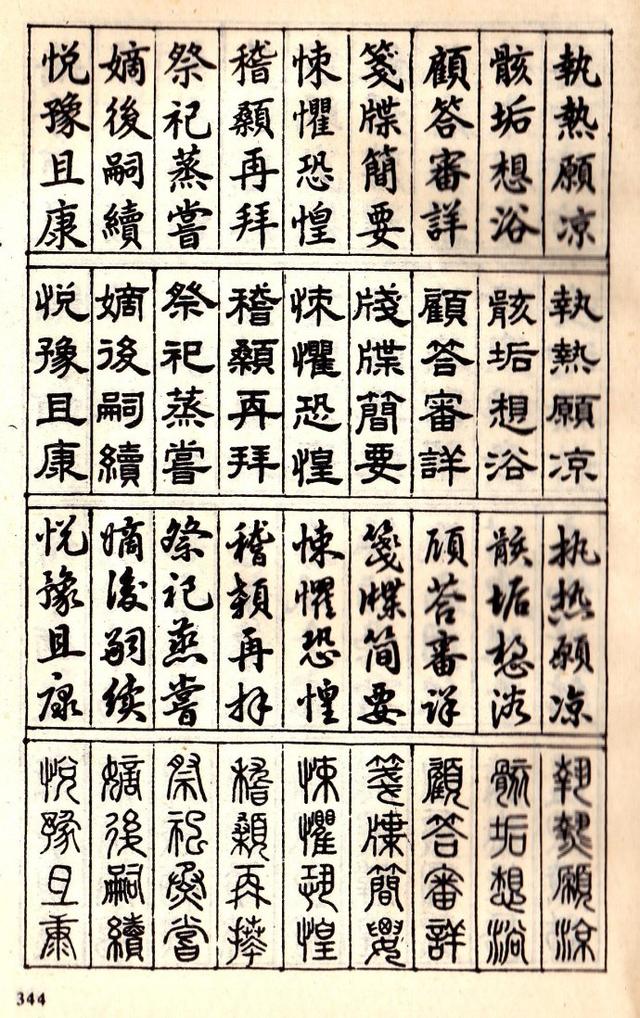 執熱願凉
骸垢想浴
顧答審詳
箋牒簡要
悚懼恐惶
稽顙再拜
祭祀蒸嘗
嫡後嗣續
悦豫且康
執熱願凉
骸垢想浴
顧答審詳
牋牒簡要
悚懼恐惶
稽顙再拜
祭祀蒸嘗
嫡後嗣續
悦豫且康
执热願凉
骸垢想浴
顾荅審详
箋牒简要
悚懼恐惶
稽顙再拜
祭祀蒸嘗
嫡後嗣续
悦豫且康
執熱願涼
骸垢想浴
顧答審詳
箋牒簡要
悚懼恐惶
稽顙再拜
祭祀蒸嘗
嫡後嗣續
悦豫且康
344